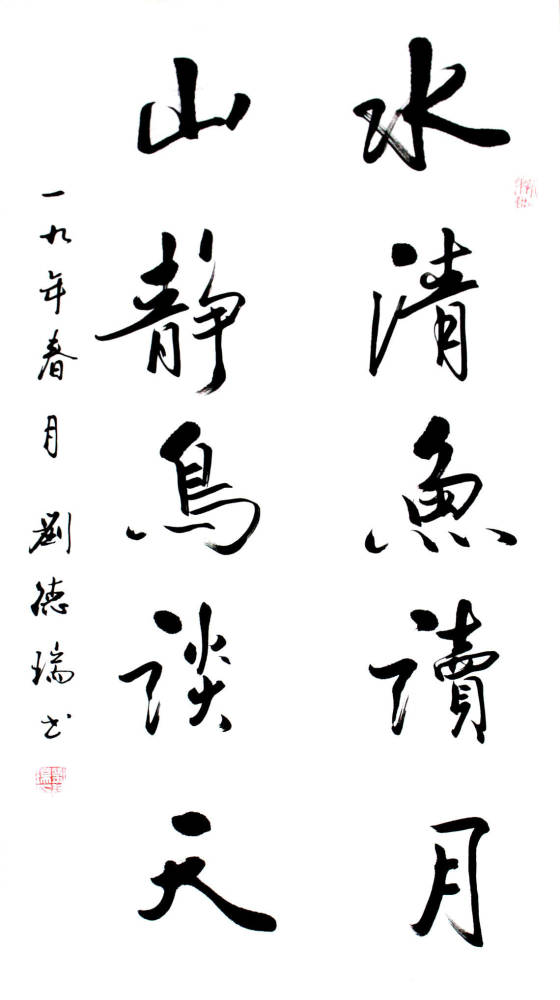 水清魚讀月
山靜鳥談天
一九年春月 劉德瑞书